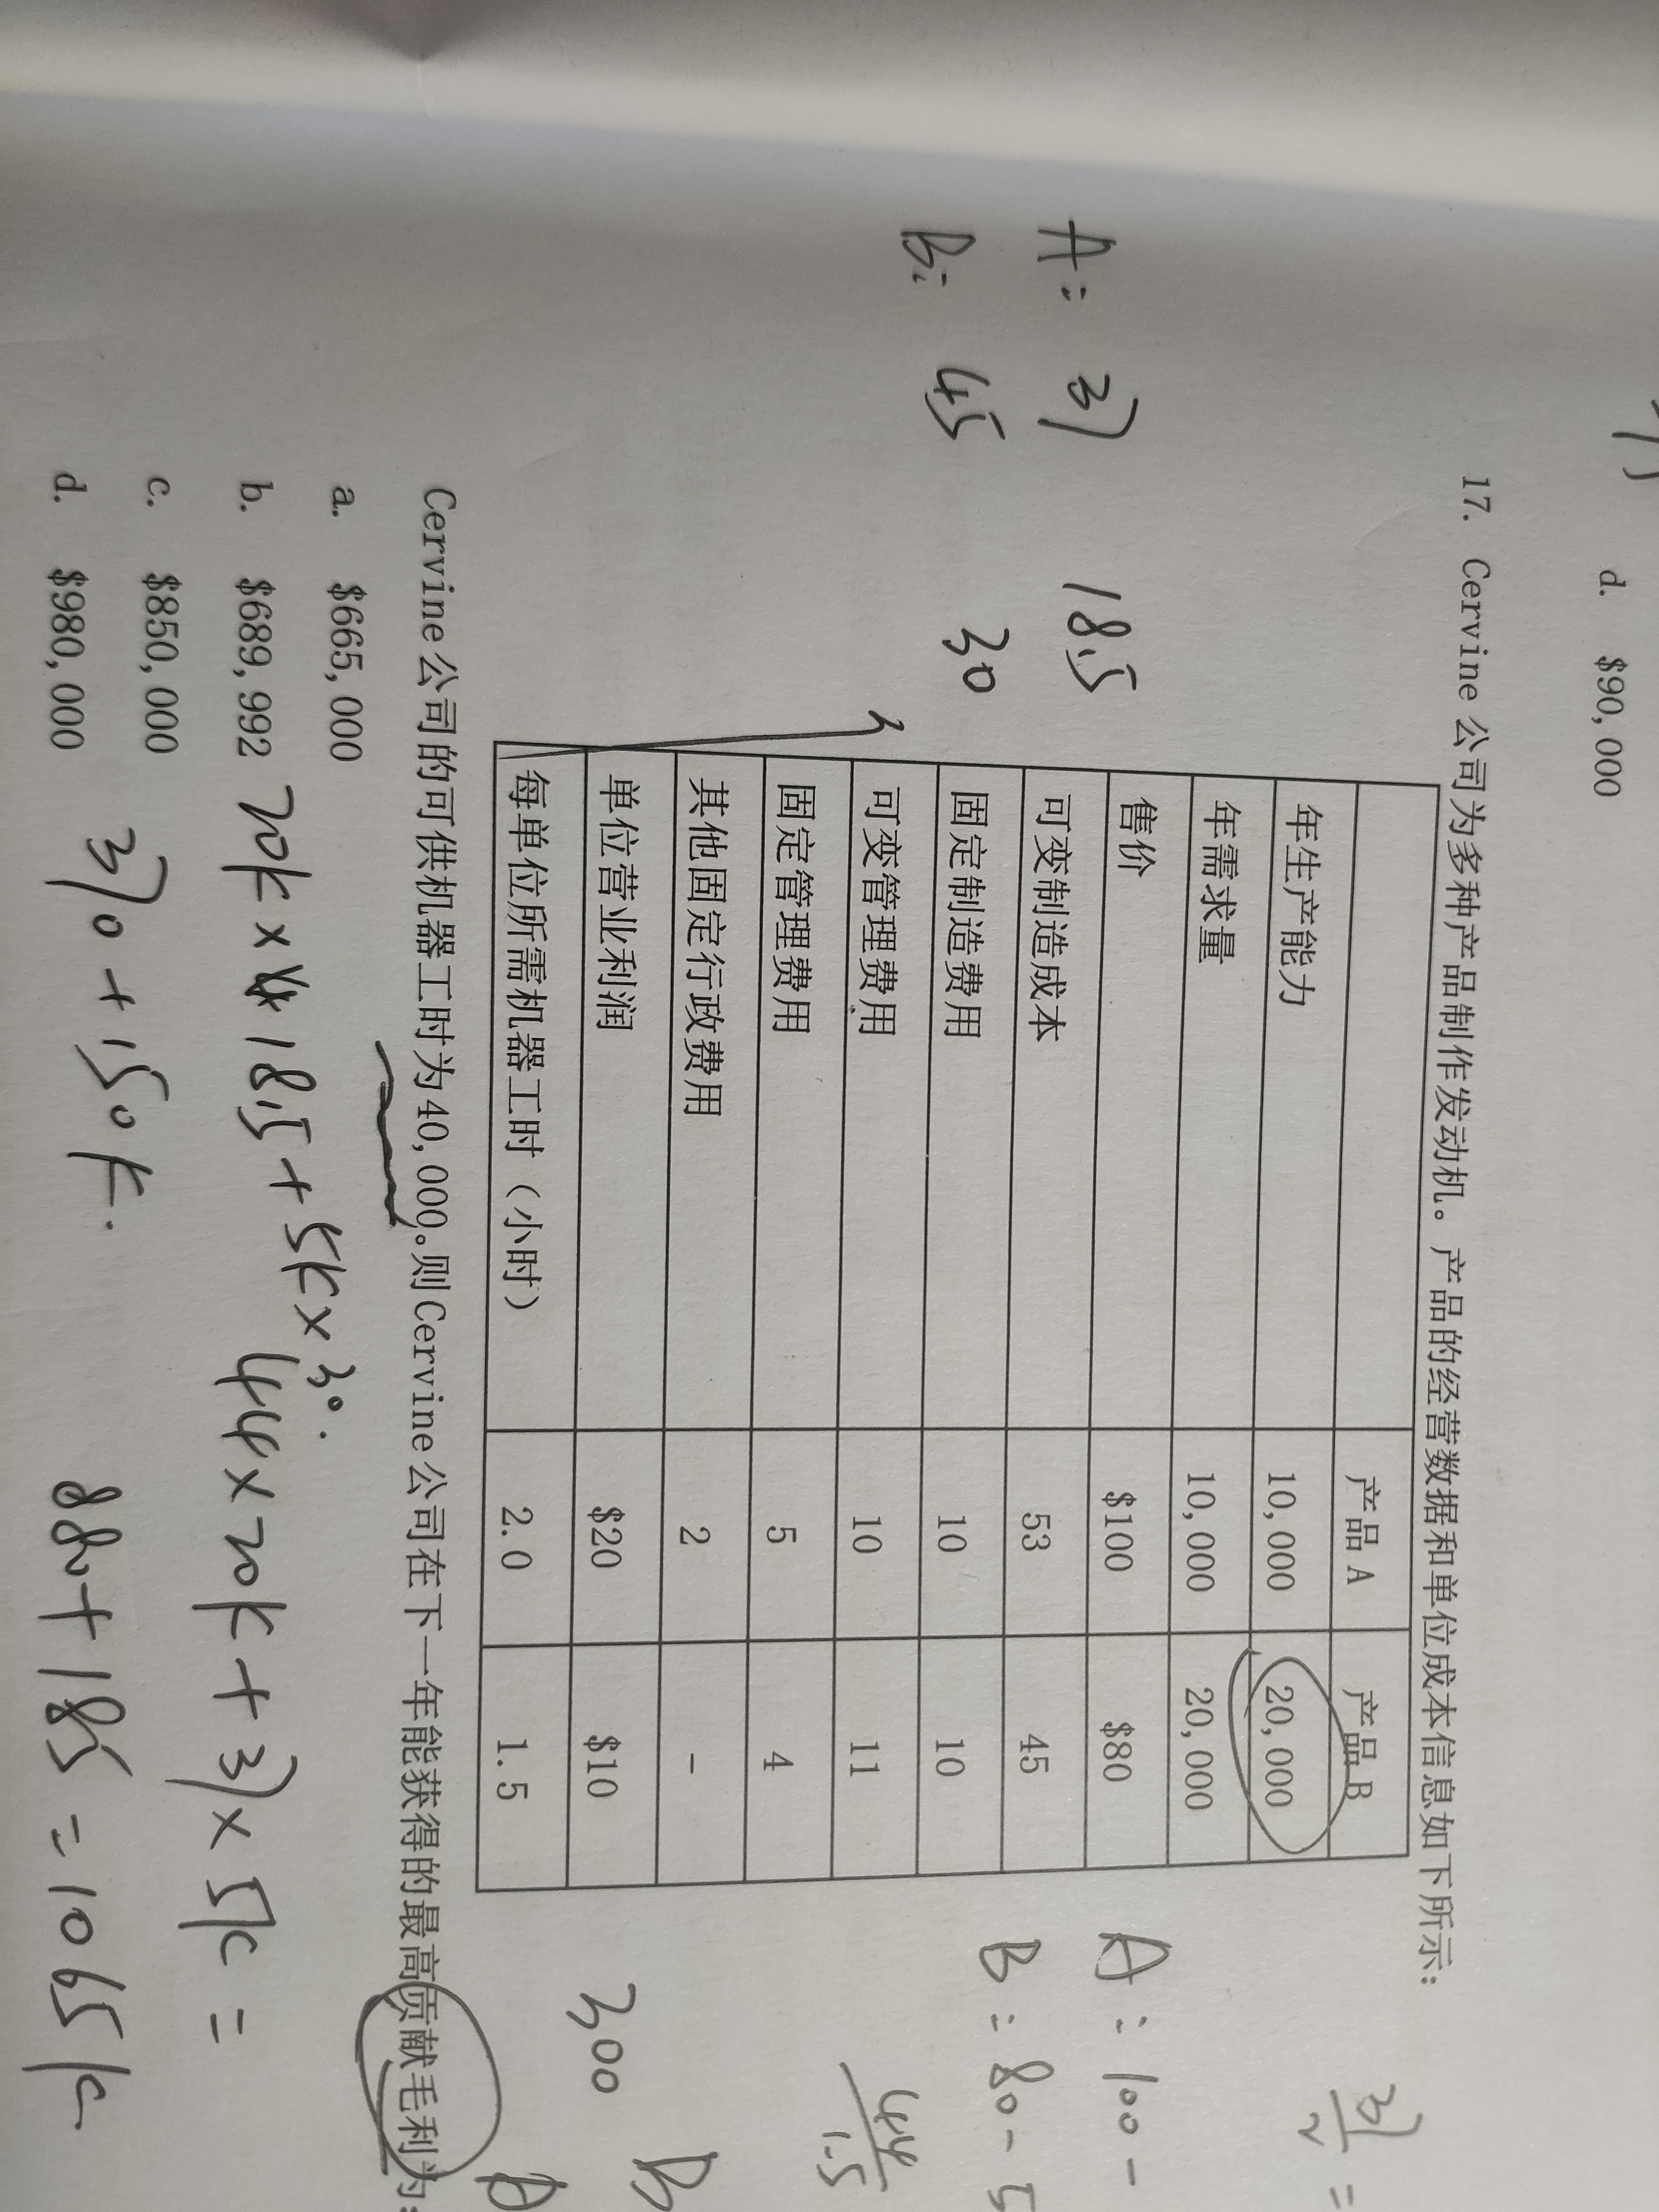 d. $90,000
17. Cervine 公司为多种产品制作发动机。产品的经营数据和单位成本信息如下所示:
产品 A 产品 B
年生产能力 10,000 20,000
年需求量 10,000 20,000
售价 $100 $80
可变制造成本 53 45
固定制造费用 10 10
可变管理费用 10 11
固定管理费用 5 4
其他固定行政费用 2 -
单位营业利润 $20 $10
每单位所需机器工时（小时） 2.0 1.5
Cervine 公司的可供机器工时为 40,000。则 Cervine 公司在下一年能获得的最高贡献毛利为:
a. $665,000
b. $689,992
c. $850,000
d. $980,000
A: 37 18.5
B: 45 30
A: 100-
B: 80-5
37/2 =
44/1.5
300
B
A
20k × 18.5 + 5k × 30.
370 + 150k.
44 × 20k + 37 × 5k =
880 + 185 = 1065k